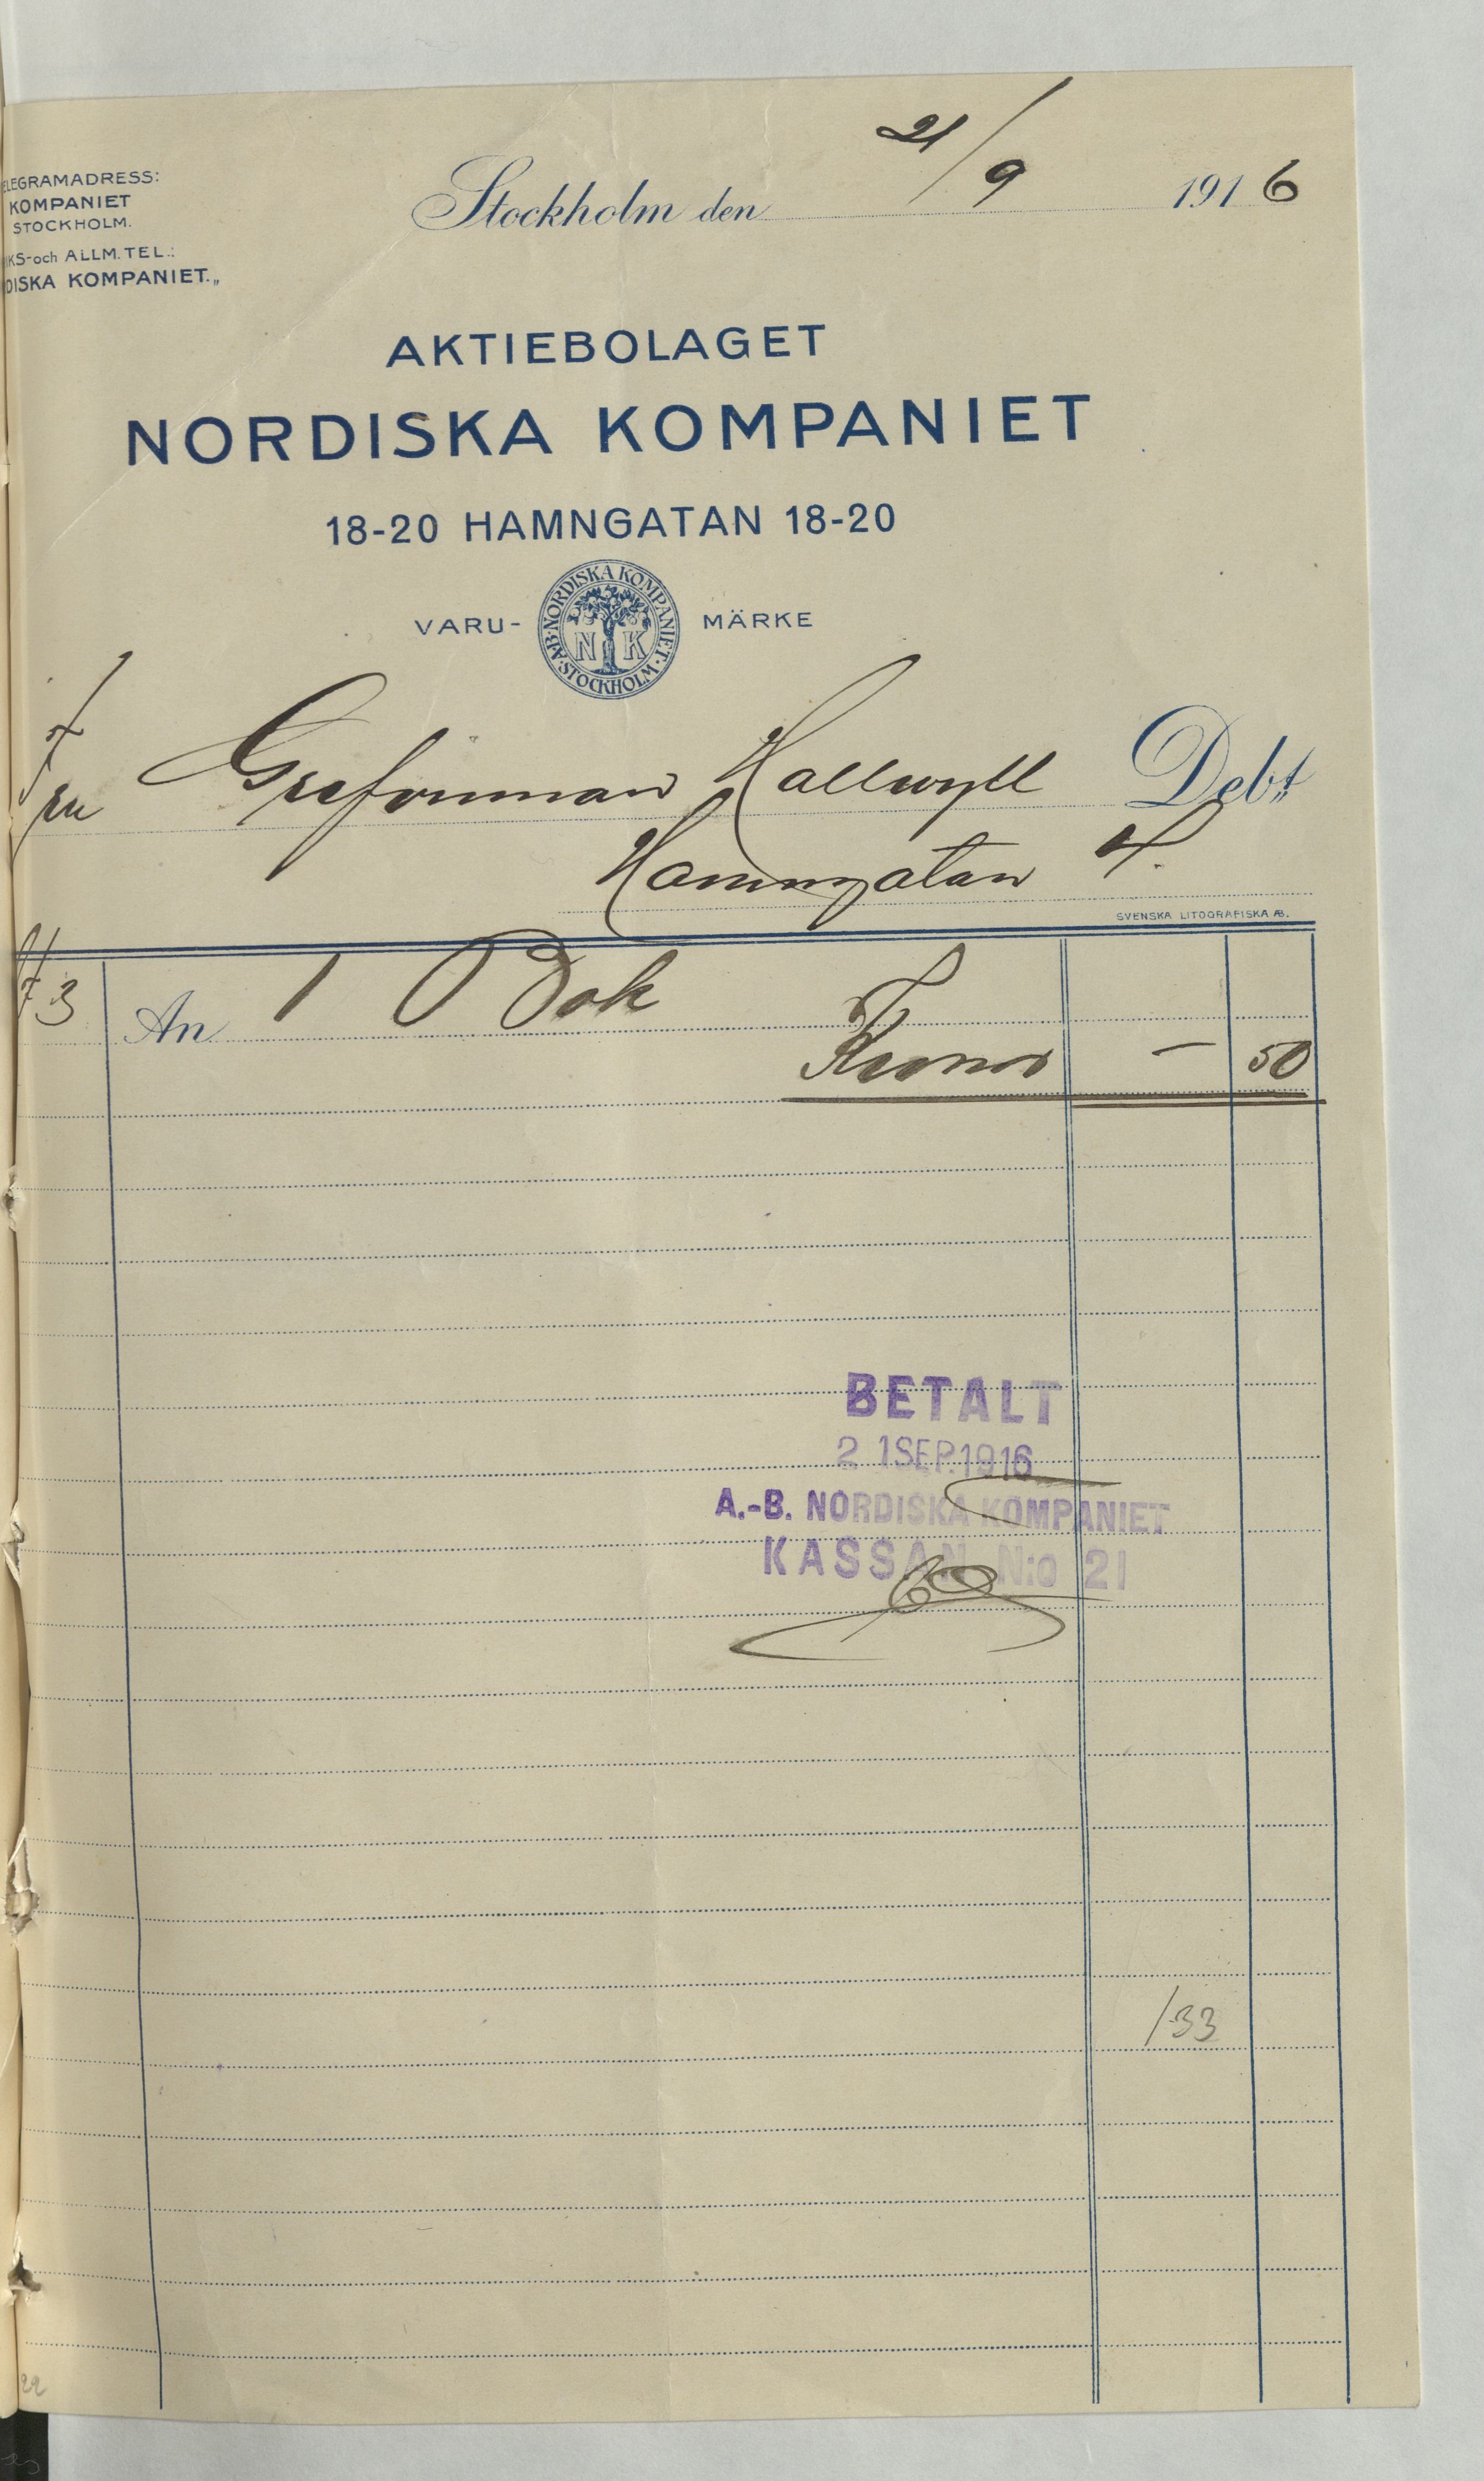 21/9
ELEGRAMADRESS:
KOMPANIET
STOCKHOLM.
Stockholm den 1916
IKS- och ALLM. TEL.:
DISKA KOMPANIET.„
AKTIEBOLAGET
NORDISKA KOMPANIET
18-20 HAMNGATAN 18-20
VARU- MÄRKE
A.B. NORDISKA KOMPANIET · STOCKHOLM
N K
Fru Grefvinnan Hallwyll Debt
Hamngatan 4.
SVENSKA LITOGRAFISKA AB.
73 An 1 Bok
Kronor — 50
BETALT
21 SEP. 1916
A.-B. NORDISKA KOMPANIET
KASSAN N:o 21
133
22